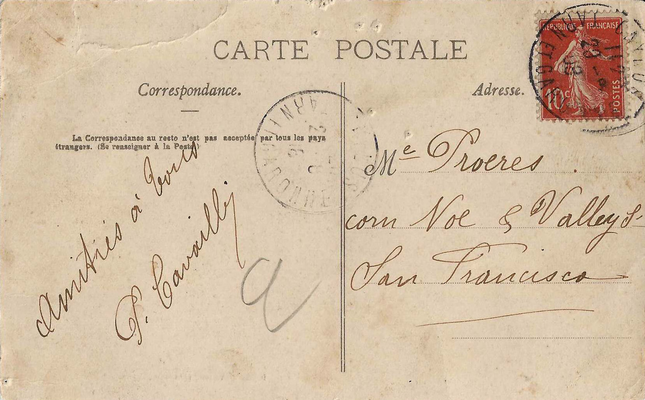 CARTE POSTALE
Correspondance.
Adresse.
La Correspondance au recto n'est pas acceptée par tous les pays
étrangers. (Se renseigner à la Poste)
RÉPUBLIQUE FRANÇAISE
10c
POSTES
Amitiés à tous
P. Cavaillé
Me Proeres
corn Noe & Valley St
San Francisco